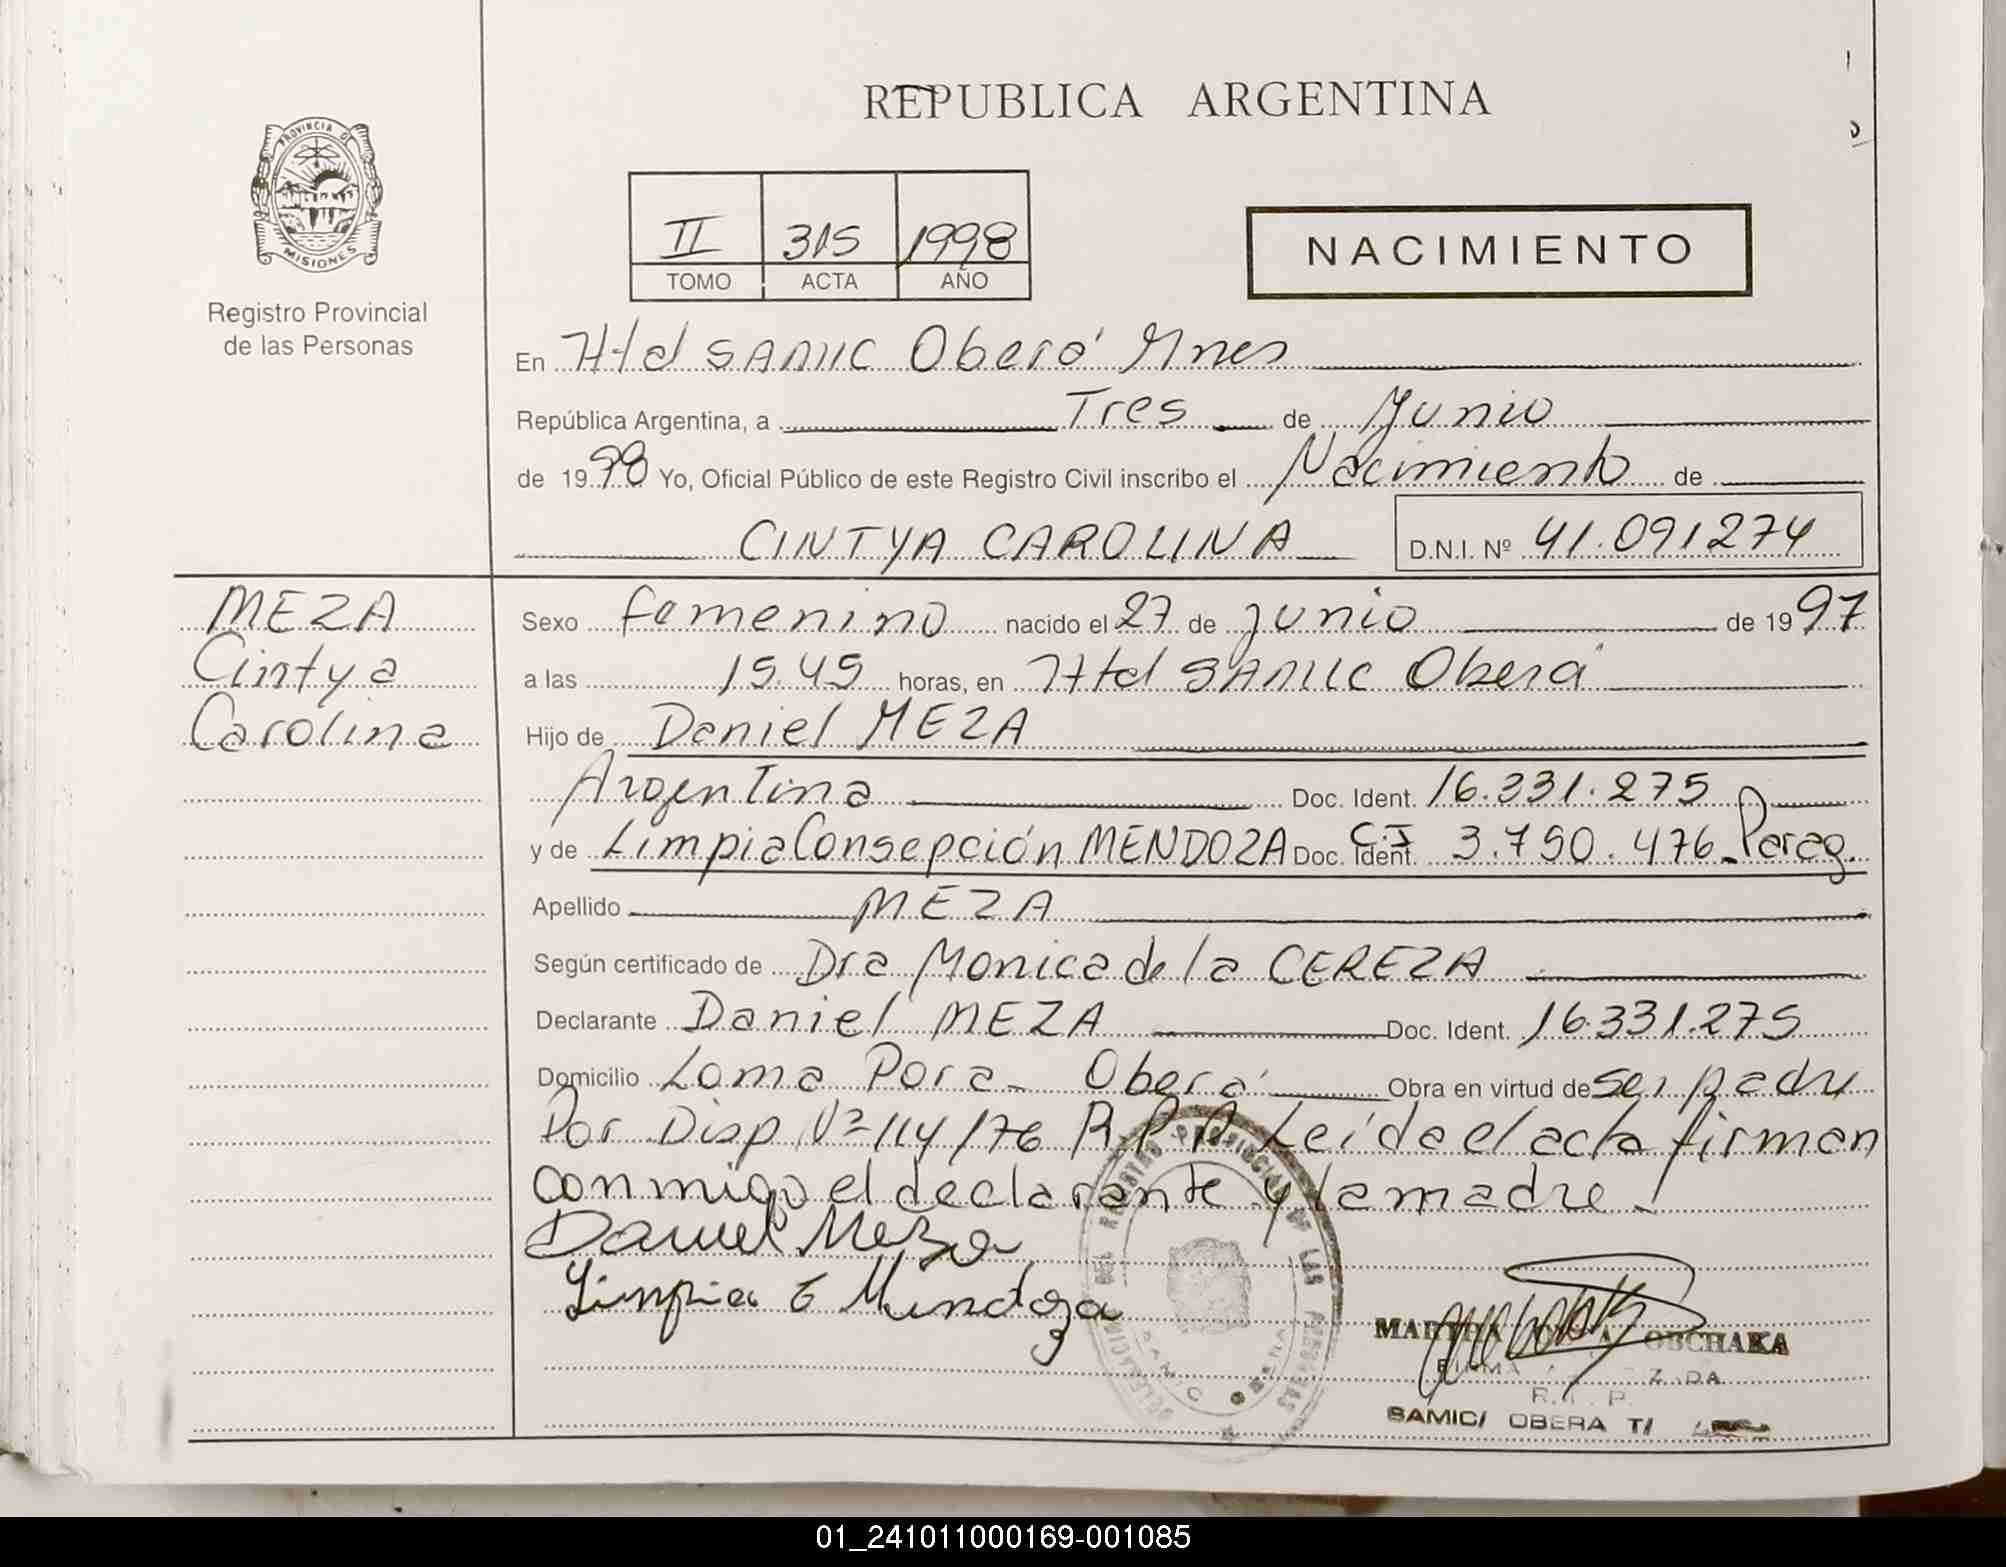 REPUBLICA ARGENTINA
PROVINCIA DE
MISIONES
Registro Provincial
de las Personas
II 315 1998
TOMO ACTA AÑO
NACIMIENTO
En Htal SAMIC Oberá Mnes
República Argentina, a Tres de Junio
de 1998 Yo, Oficial Público de este Registro Civil inscribo el Nacimiento de
CINTYA CAROLINA D.N.I. Nº 41.091274
MEZA
Cintya
Carolina
Sexo femenino nacido el 27 de junio de 1997
a las 15.45 horas, en Htal SAMIC Oberá
Hijo de Daniel MEZA
Argentina Doc. Ident. 16.331.275
y de Limpia Consepción MENDOZA Doc. Ident. C.I 3.790.476 Parag.
Apellido MEZA
Según certificado de Dra Monica de la CEREZA
Declarante Daniel MEZA Doc. Ident. 16.331.275
Domicilio Loma Pora - Oberá Obra en virtud de ser padre
Por Disp Nº 114/76 R.P.P. Leída el acta firman
conmigo el declarante y la madre.
Daniel Meza
Limpia C Mendoza
DEL REGISTRO PROVINCIAL DE LAS PERSONAS
MARTHA OBCHAKA
FIRMA
R. P.
SAMIC/ OBERA T/
01_241011000169-001085